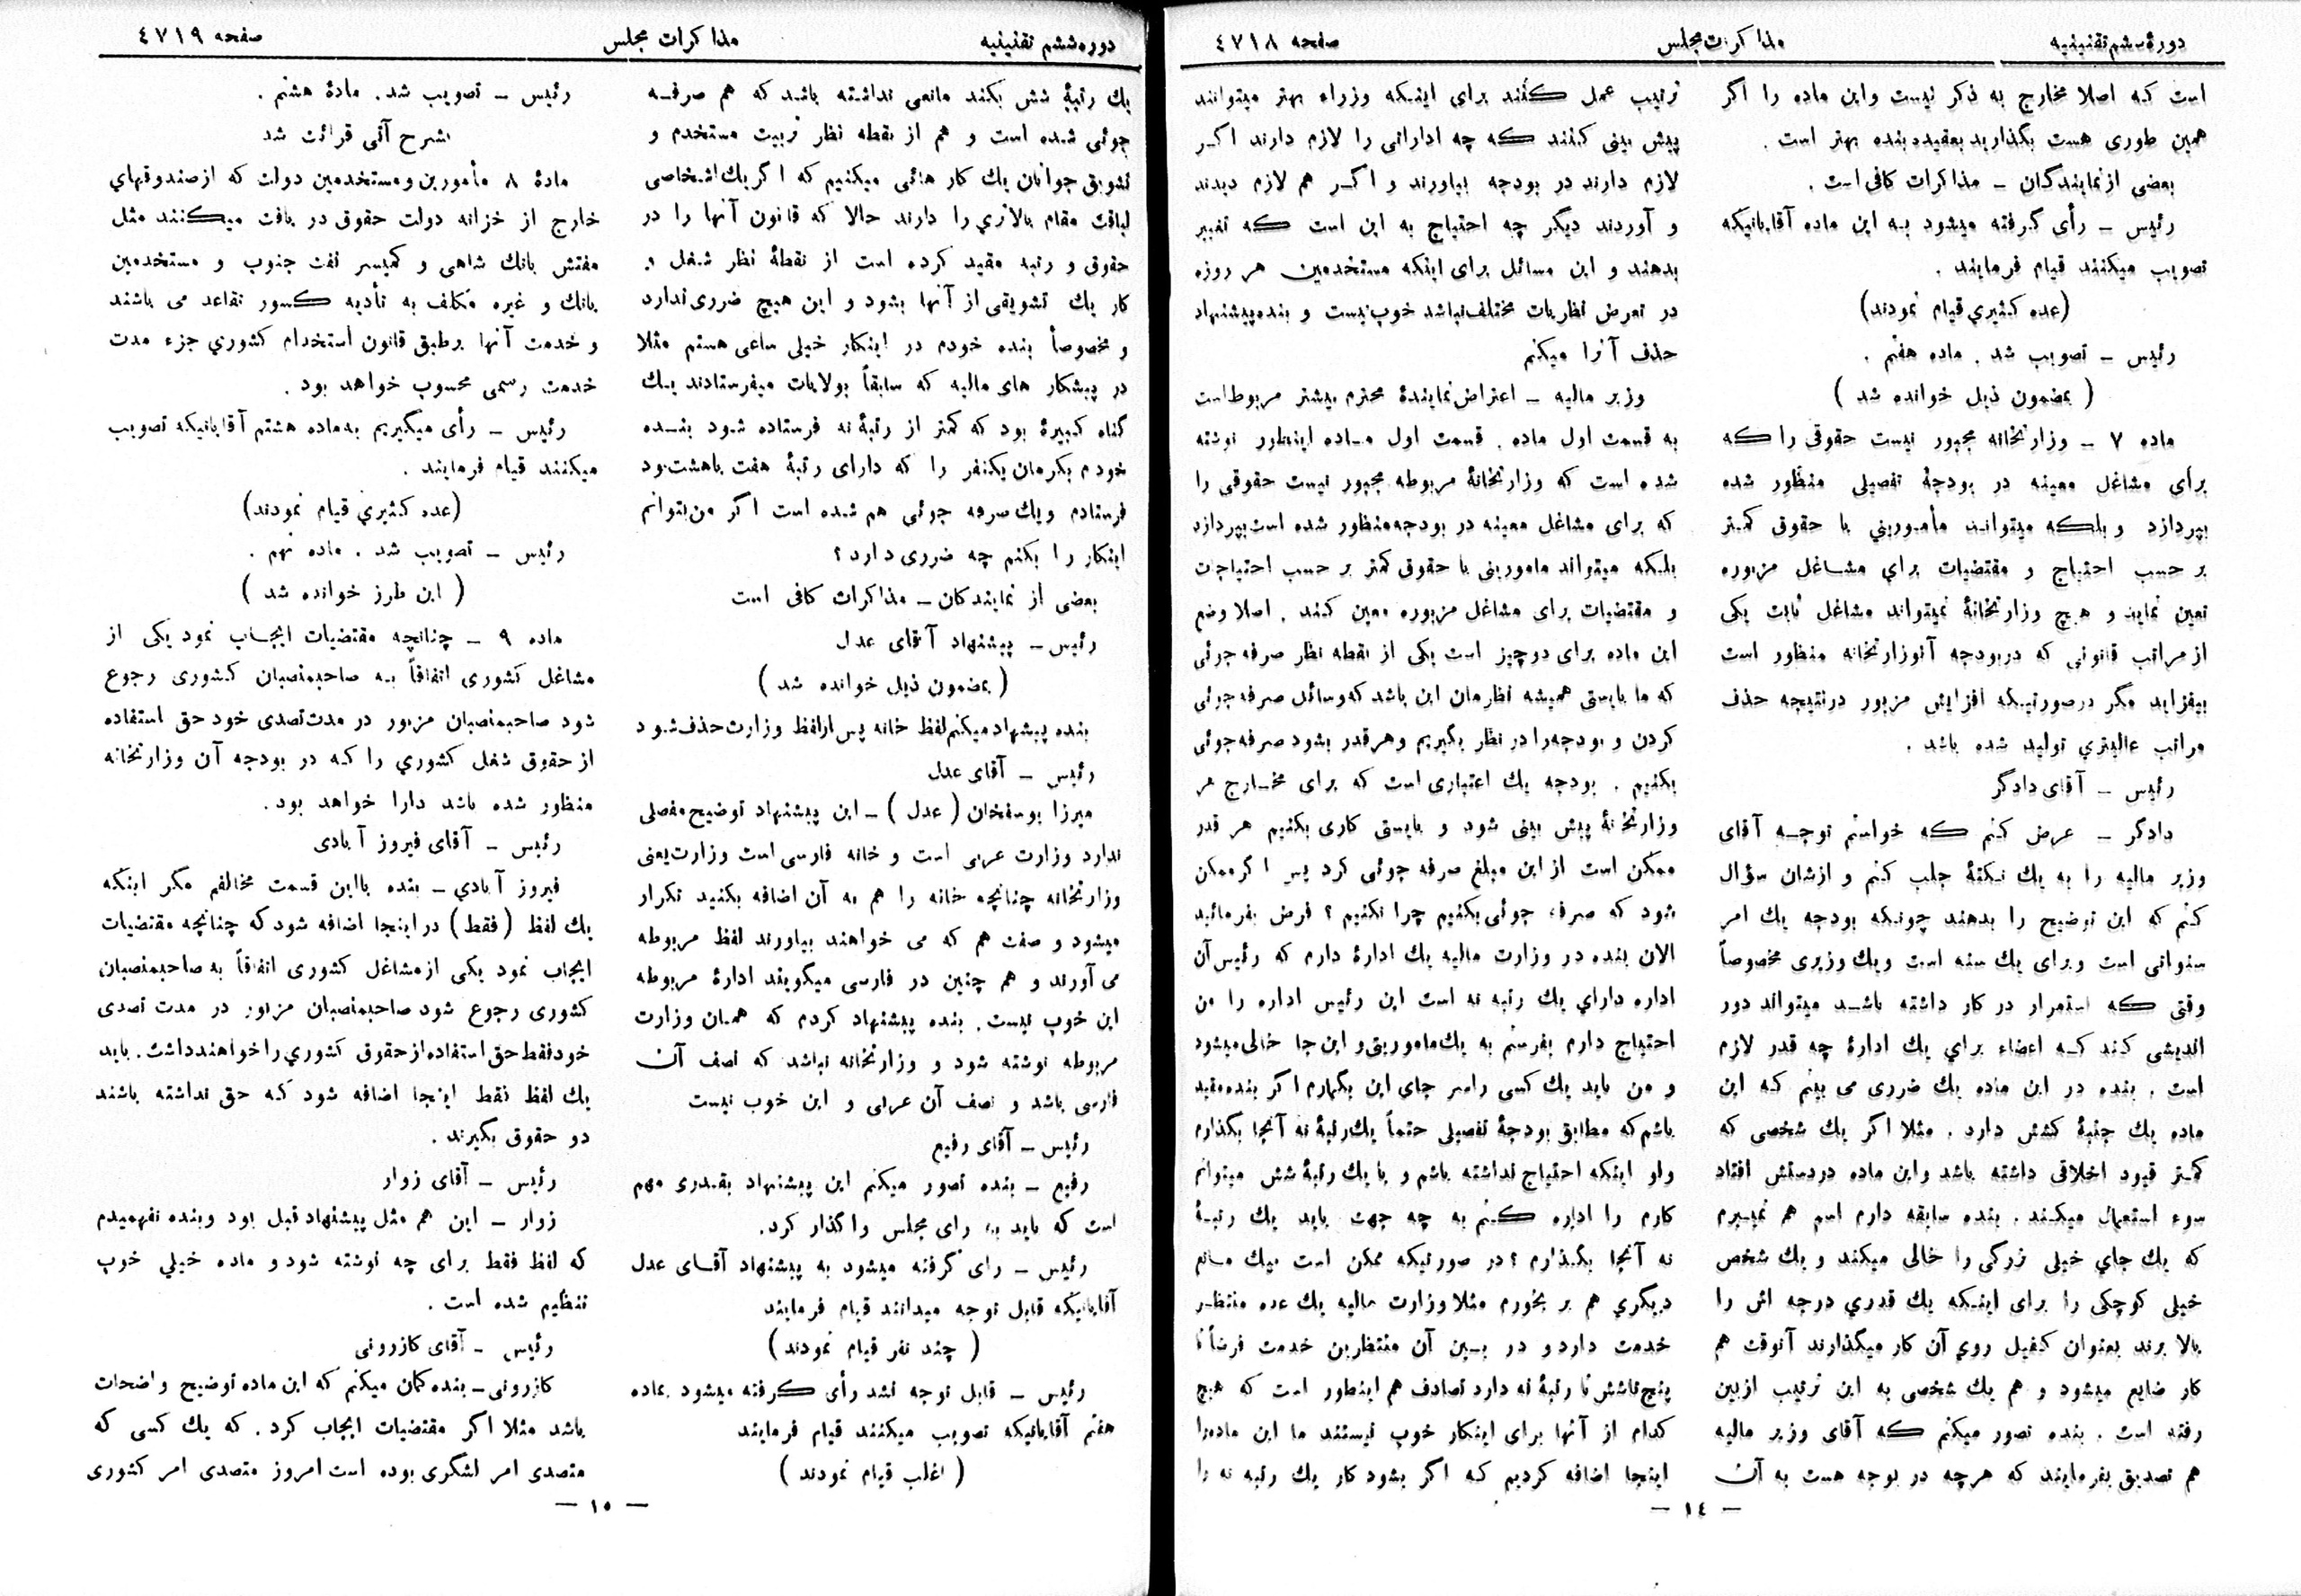 دورهٔ ششم تقنینیه
مذاکرات مجلس
صفحه ٤٧١٨
است که اصلا مخارج به ذکر نیست واین ماده را اگر
همین طوری هست بگذارید بعقیده بنده بهتر است .
بعضی از نمایندگان – مذاکرات کافی است .
رئیس – رأی گرفته میشود به این ماده آقایانیکه
تصویب میکنند قیام فرمایند .
(عده کثیری قیام نمودند)
رئیس – تصویب شد . ماده هفتم .
( بمضمون ذیل خوانده شد )
ماده ٧ – وزارتخانه مجبور نیست حقوقی را که
برای مشاغل معینه در بودجهٔ تفصیلی منظور شده
بپردازد وبلکه میتواند مأمورینی با حقوق کمتر
بر حسب احتیاج و مقتضیات برای مشاغل مزبوره
تعین نماید و هیچ وزارتخانهٔ نمیتواند مشاغل ثابت یکی
از مراتب قانونی که دربودجه آنوزارتخانه منظور است
بیفزاید مگر درصورتیکه افزایش مزبور درنتیجه حذف
مراتب عالیتری تولید شده باشد .
رئیس – آقای دادگر
دادگر – عرض کنم که خواستم توجه آقای
وزیر مالیه را به یك نکتهٔ جلب کنم و ازشان سؤال
کنم که این توضیح را بدهند چونکه بودجه یك امر
سنواتی است وبرای یك سنه است ویك وزیری مخصوصاً
وقتی که استمرار در کار داشته باشد میتواند دور
اندیشی کند که اعضاء برای یك ادارهٔ چه قدر لازم
است . بنده در این ماده یك ضرری می بینم که این
ماده یك جنبهٔ کشش دارد . مثلا اگر یك شخصی که
کمتر قیود اخلاقی داشته باشد واین ماده دردستش افتاد
سوء استعمال میکند . بنده سابقه دارم اسم هم نمیبرم
که یك جای خیلی بزرگی را خالی میکند و یك شخص
خیلی کوچکی را برای اینکه یك قدری درجه اش را
بالا برند بعنوان کفیل روی آن کار میگذارند آنوقت هم
کار ضایع میشود و هم یك شخصی به این ترتیب ازبین
رفته است . بنده تصور میکنم که آقای وزیر مالیه
هم تصدیق بفرمایند که هرچه در بوجه هست به آن
ترتیب عمل کنند برای اینکه وزراء بهتر میتوانند
پیش بینی کنند که چه اداراتی را لازم دارند اگر
لازم دارند در بودجه بیاورند و اگر هم لازم دیدند
و آوردند دیگر چه احتیاج به این است که تغییر
بدهند و این مسائل برای اینکه مستخدمین هر روزه
در تعرض نظریات مختلف نباشد خوب نیست و بنده پیشنهاد
حذف آنرا میکنم
وزیر مالیه – اعتراض نمایندهٔ محترم بیشتر مربوط است
به قسمت اول ماده . قسمت اول ماده اینطور نوشته
شده است که وزارتخانهٔ مربوطه مجبور نیست حقوقی را
که برای مشاغل معینه در بودجه منظور شده است بپردازد
بلکه میتواند مامورینی با حقوق کمتر بر حسب احتیاجات
و مقتضیات برای مشاغل مزبوره معین کنند . اصلا وضع
این ماده برای دوچیز است یکی از نقطه نظر صرفه جوئی
که ما بایستی همیشه نظرمان این باشد که وسائل صرفه جوئی
کردن و بودجه را در نظر بگیریم وهرقدر بشود صرفه جوئی
بکنیم . بودجه یك اعتباری است که برای مخارج هر
وزارتخانهٔ پیش بینی شود و بایستی کاری بکنیم هر قدر
ممکن است از این مبلغ صرفه جوئی کرد پس اگر ممکن
شود که صرفه جوئی بکنیم چرا نکنیم ؟ فرض بفرمائید
الان بنده در وزارت مالیه یك ادارهٔ دارم که رئیس آن
اداره دارای یك رتبه نه است این رئیس اداره را من
احتیاج دارم بفرستم به یك ماموریتی و این جا خالی میشود
و من باید یك کسی را سر جای این بگمارم اگر بنده مقید
باشم که مطابق بودجهٔ تفصیلی حتماً یك رتبهٔ نه آنجا بگذارم
ولو اینکه احتیاج نداشته باشم و با یك رتبهٔ شش میتوانم
کارم را اداره کنم به چه جهت باید یك رتبهٔ
نه آنجا بگذارم ؟ در صورتیکه ممکن است بیك مانع
دیگری هم بر بخورم مثلا وزارت مالیه یك عده منتظر
خدمت دارد و در بین آن منتظرین خدمت فرضاً تا
پنج تاشش تا رتبهٔ نه دارد تصادف هم اینطور است که هیچ
کدام از آنها برای اینکار خوب نیستند ما این ماده را
اینجا اضافه کردیم که اگر بشود کار یك رتبه نه را
– ١٤ –
دوره ششم تقنینیه
مذاکرات مجلس
صفحه ٤٧١٩
یك رتبهٔ شش بکند مانعی نداشته باشد که هم صرفه
جوئی شده است و هم از نقطه نظر تربیت مستخدم و
تشویق جوانان یك کار هائی میکنیم که اگر یك اشخاصی
لیاقت مقام بالاتری را دارند حالا که قانون آنها را در
حقوق و رتبه مقید کرده است از نقطهٔ نظر شغل و
کار یك تشویقی از آنها بشود و این هیچ ضرری ندارد
و مخصوصاً بنده خودم در اینکار خیلی ساعی هستم مثلا
در پیشکار های مالیه که سابقاً بولایات میفرستادند یك
گناه کبیرهٔ بود که کمتر از رتبهٔ نه فرستاده شود بنده
خودم بکرمان یکنفر را که دارای رتبهٔ هفت یاهشت بود
فرستادم ویك صرفه جوئی هم شده است اگر من بتوانم
اینکار را بکنم چه ضرری دارد ؟
بعضی از نمایندکان – مذاکرات کافی است
رئیس – پیشنهاد آقای عدل
( بمضمون ذیل خوانده شد )
بنده پیشنهاد میکنم لفظ خانه پس از لفظ وزارت حذف شود
رئیس – آقای عدل
میرزا یوسفخان ( عدل ) – این پیشنهاد توضیح مفصلی
ندارد وزارت عربی است و خانه فارسی است وزارت یعنی
وزارتخانه چنانچه خانه را هم به آن اضافه بکنید تکرار
میشود و صفت هم که می خواهند بیاورند لفظ مربوطه
می آورند و هم چنین در فارسی میگویند ادارهٔ مربوطه
این خوب نیست . بنده پیشنهاد کردم که همان وزارت
مربوطه نوشته شود و وزارتخانه نباشد که نصف آن
فارسی باشد و نصف آن عربی و این خوب نیست
رئیس – آقای رفیع
رفیع – بنده تصور میکنم این پیشنهاد بقدری مهم
است که باید به رای مجلس واگذار کرد.
رئیس – رای گرفته میشود به پیشنهاد آقای عدل
آقایانیکه قابل توجه میدانند قیام فرمایند
( چند نفر قیام نمودند )
رئیس – قابل توجه نشد رأی گرفته میشود بماده
هفتم آقایانیکه تصویب میکنند قیام فرمایند
( اغلب قیام نمودند )
رئیس – تصویب شد. مادهٔ هشتم .
بشرح آتی قرائت شد
مادهٔ ٨ مأمورین ومستخدمین دولت که از صندوقهای
خارج از خزانه دولت حقوق در یافت میکنند مثل
مفتش بانك شاهی و کمیسر نفت جنوب و مستخدمین
بانك و غیره مکلف به تأدیه کسور تقاعد می باشند
و خدمت آنها برطبق قانون استخدام کشوری جزء مدت
خدمت رسمی محسوب خواهد بود .
رئیس – رأی میگیریم به ماده هشتم آقایانیکه تصویب
میکنند قیام فرمایند .
(عده کثیری قیام نمودند)
رئیس – تصویب شد . ماده نهم .
( این طرز خوانده شد )
ماده ٩ – چنانچه مقتضیات ایجاب نمود یکی از
مشاغل کشوری اتفاقاً به صاحبمنصبان کشوری رجوع
شود صاحبمنصبان مزبور در مدت تصدی خود حق استفاده
از حقوق شغل کشوری را که در بودجه آن وزارتخانه
منظور شده باشد دارا خواهد بود.
رئیس – آقای فیروز آبادی
فیروز آبادی – بنده بااین قسمت مخالفم مگر اینکه
یك لفظ (فقط) در اینجا اضافه شود که چنانچه مقتضیات
ایجاب نمود یکی از مشاغل کشوری اتفاقاً به صاحبمنصبان
کشوری رجوع شود صاحبمنصبان مزبور در مدت تصدی
خود فقط حق استفاده از حقوق کشوری را خواهند داشت . باید
یك لفظ فقط اینجا اضافه شود که حق نداشته باشند
دو حقوق بگیرند .
رئیس – آقای زوار
زوار – این هم مثل پیشنهاد قبل بود وبنده نفهمیدم
که لفظ فقط برای چه نوشته شود و ماده خیلی خوب
تنظیم شده است .
رئیس – آقای کازرونی
کازرونی – بنده گمان میکنم که این ماده توضیح واضحات
باشد مثلا اگر مقتضیات ایجاب کرد . که یك کسی که
متصدی امر لشگری بوده است امروز متصدی امر کشوری
– ١٥ –